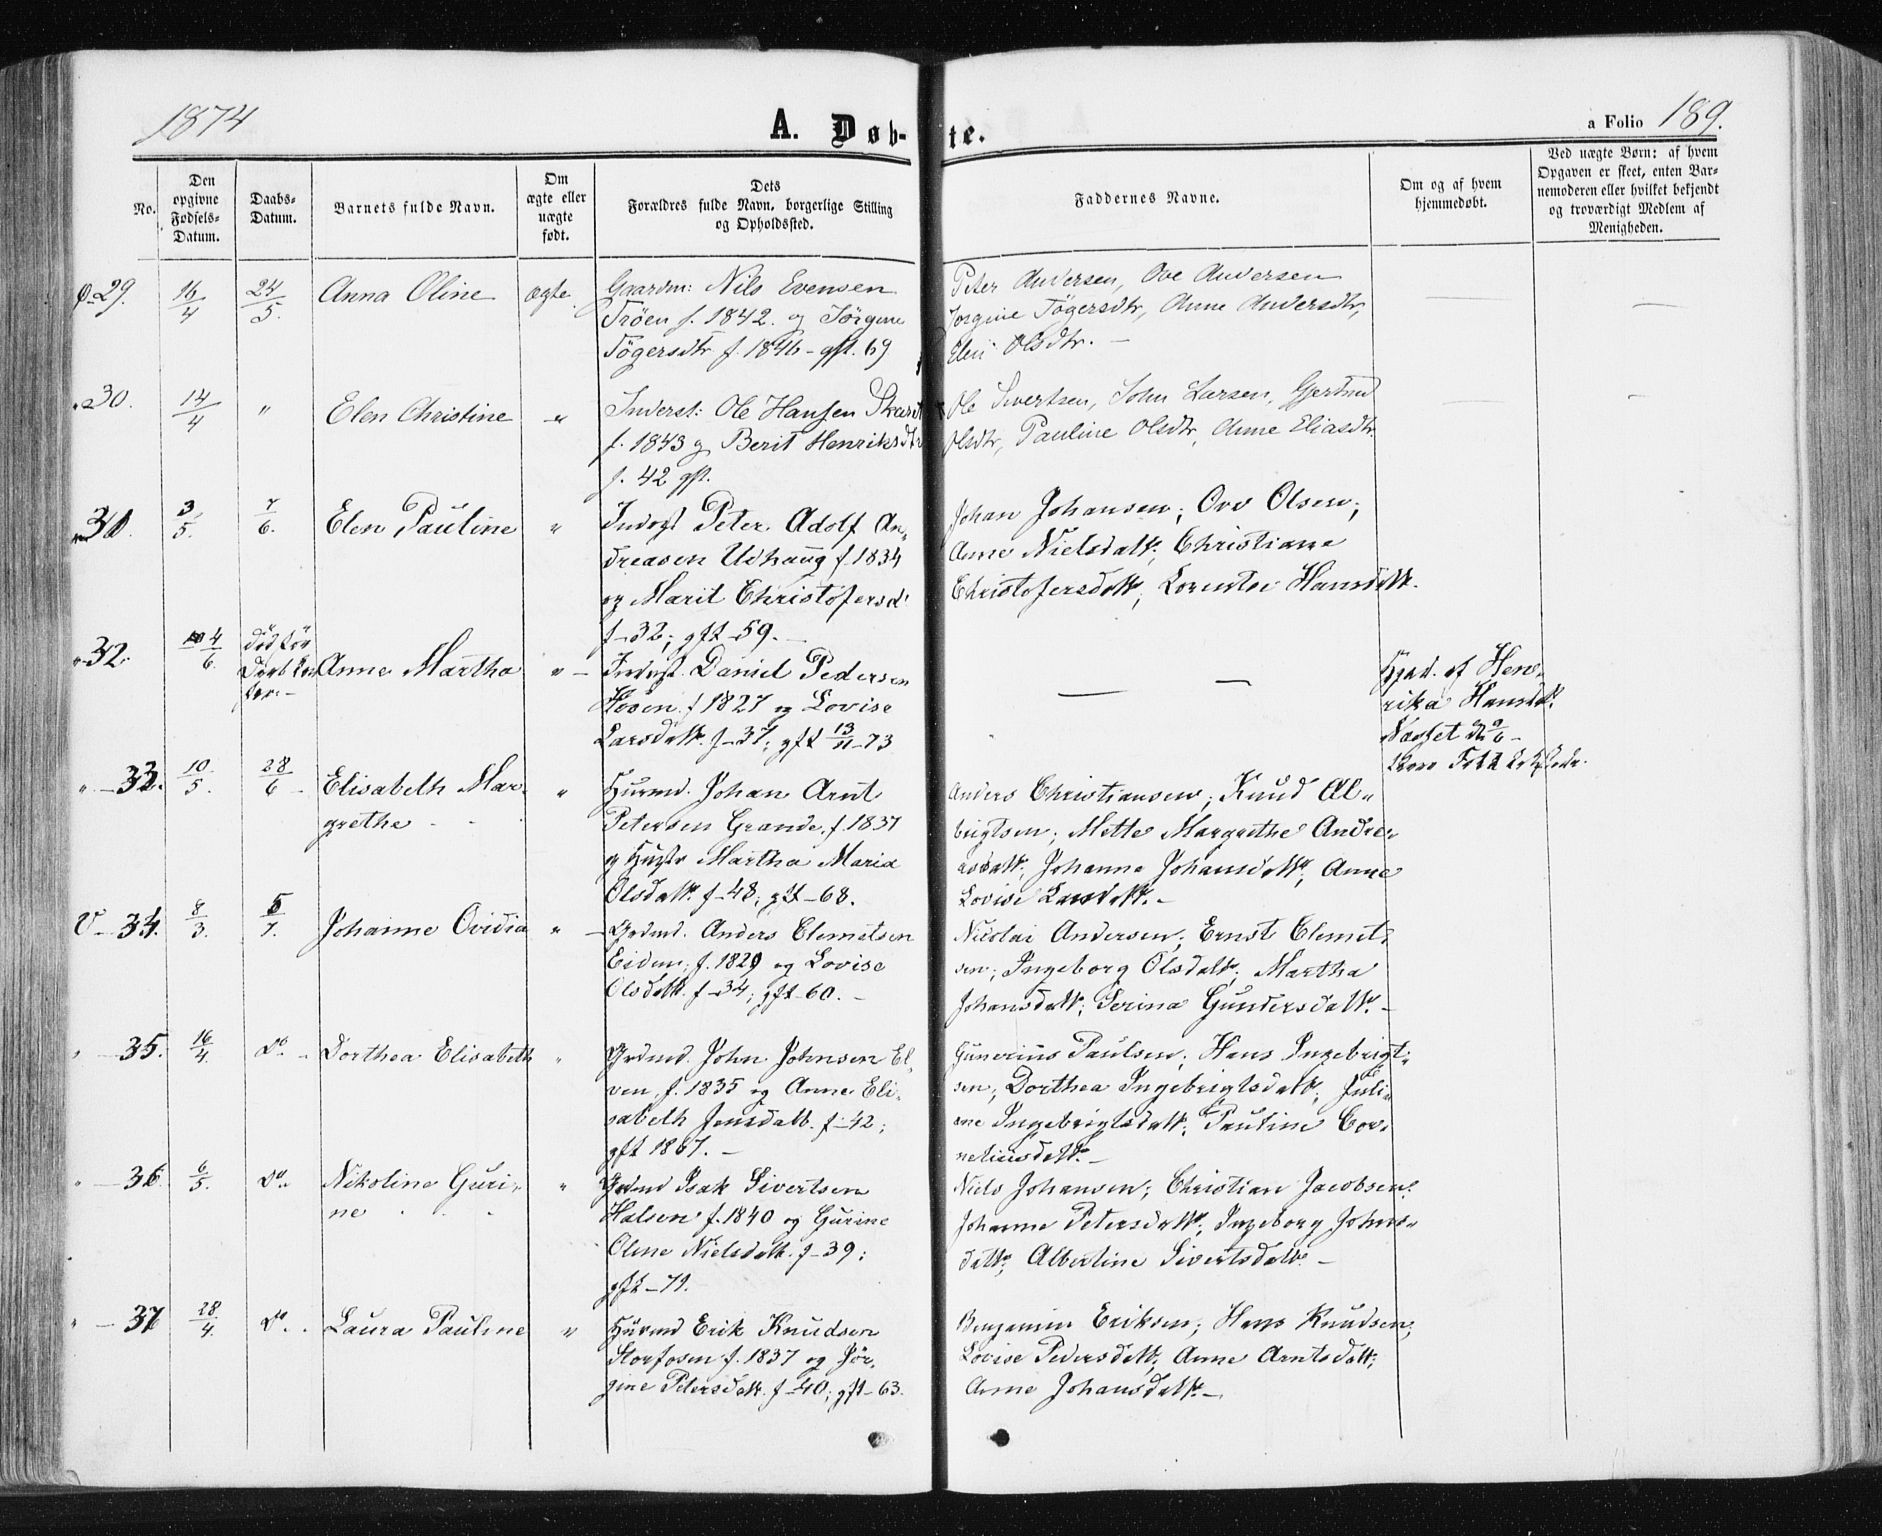 1874
A. Døbte.
a Folio 189.
No.
Den opgivne Fødsels-Datum.
Daabs-Datum.
Barnets fulde Navn.
Om ægte eller uægte født.
Dets Forældres fulde Navn, borgerlige Stilling og Opholdssted.
Faddernes Navne.
Om og af hvem hjemmedøbt.
Ved uægte Børn: af hvem Opgaven er skeet, enten Barnemoderen eller hvilket bekjendt og troværdigt Medlem af Menigheden.
Ø-29. 16/4 24/5. Anna Oline ægte. Gaardm: Nils Evensen
Trøen f. 1842. og Jörgine
Tögersdtr f. 1846 - gft. 69
Peter Andersen, Ove Andersen
Jörgine Tögersdtr, Anne Andersdtr,
Elen Olsdtr. —
" 30. 14/4 " Elen Christine " Inderst: Ole Hansen
f. 1843 og Berit Henriksdtr
f. 42 gft.
Ole Sivertsen, John Larsen, Gjertrud
Olsdtr, Pauline Olsdtr, Anne Eliasdtr.
" 31. 3/5. 7/6. Elen Pauline " Indrgst Peter Adolf An-
dreasen Udhaug f. 1834
og Marit Christofersd.
f-32; gft-59. —
Johan Johansen; Ove Olsen;
Anne Nielsdatt.; Christianne
Christofersdatt; Lorentse Hansdatt.
" 32. 4/6. död för Anne Martha " — Indrgst. Daniel Pedersen
Hosen. f 1827 og Lovise
Larsdatt. f-37; gft 13/11-73
Hjmd. af Hen-
rika Hansdt.
" — 33. 10/5. 28/6 — Elisabeth Mar-
grethe " Husmd. Johan Arnt
Petersen Grande. f. 1837
og Hustr Martha Maria
Olsdatt. f-48; gft-68.
Anders Christiansen; Knud Al-
brigtsen; Mette Margrethe Andre-
asdatt; Johanna Johansdatt; Anne
Lovise Larsdatt. —
V — 34. 8/3. 5/7. Johanne Ovidia " — Grdmd. Anders Clemetsen
Eidem; f. 1829 og Lovise
Olsdatt. f-34; gft-60. —
Nicolai Andersen; Ernst Clemet-
sen; Ingeborg Olsdatt; Martha
Johansdatt; Serina Gundersdatt. —
" — 35. 16/4. do. — Dorthea Elisabeth " Grdmd. John Johnsen El-
ven, f. 1835 og Anne Eli-
sabeth Jensdatt. f-42;
gft 1867. —
Gunerius Paulsen; Hans Ingebrigt-
sen; Dorthea Ingebrigtsdatt; Juli-
ane Ingebrigtsdatt; Pauline Cor-
neliusdatt. —
" — 36. 6/5. do. Nikoline Guri-
ne " Grdmd Isak Sivertsen
Halsen f. 1840 og Gurine
Oline Nielsdatt. f-39;
gft-71.
Niels Johansen; Christian Jacobsen;
Johanne Petersdatt; Ingeborg Johns-
datt; Albertine Sivertsdatt. —
" — 37 28/4. do. . Laura Pauline " Husmd Erik Knudsen
Storfosen f. 1837 og Jör-
gine Petersdatt. f-40; gft-63.
Benjamin Eriksen; Hans Knudsen;
Lovise Pedersdatt; Anne Arntsdatt;
Anne Johansdatt. —